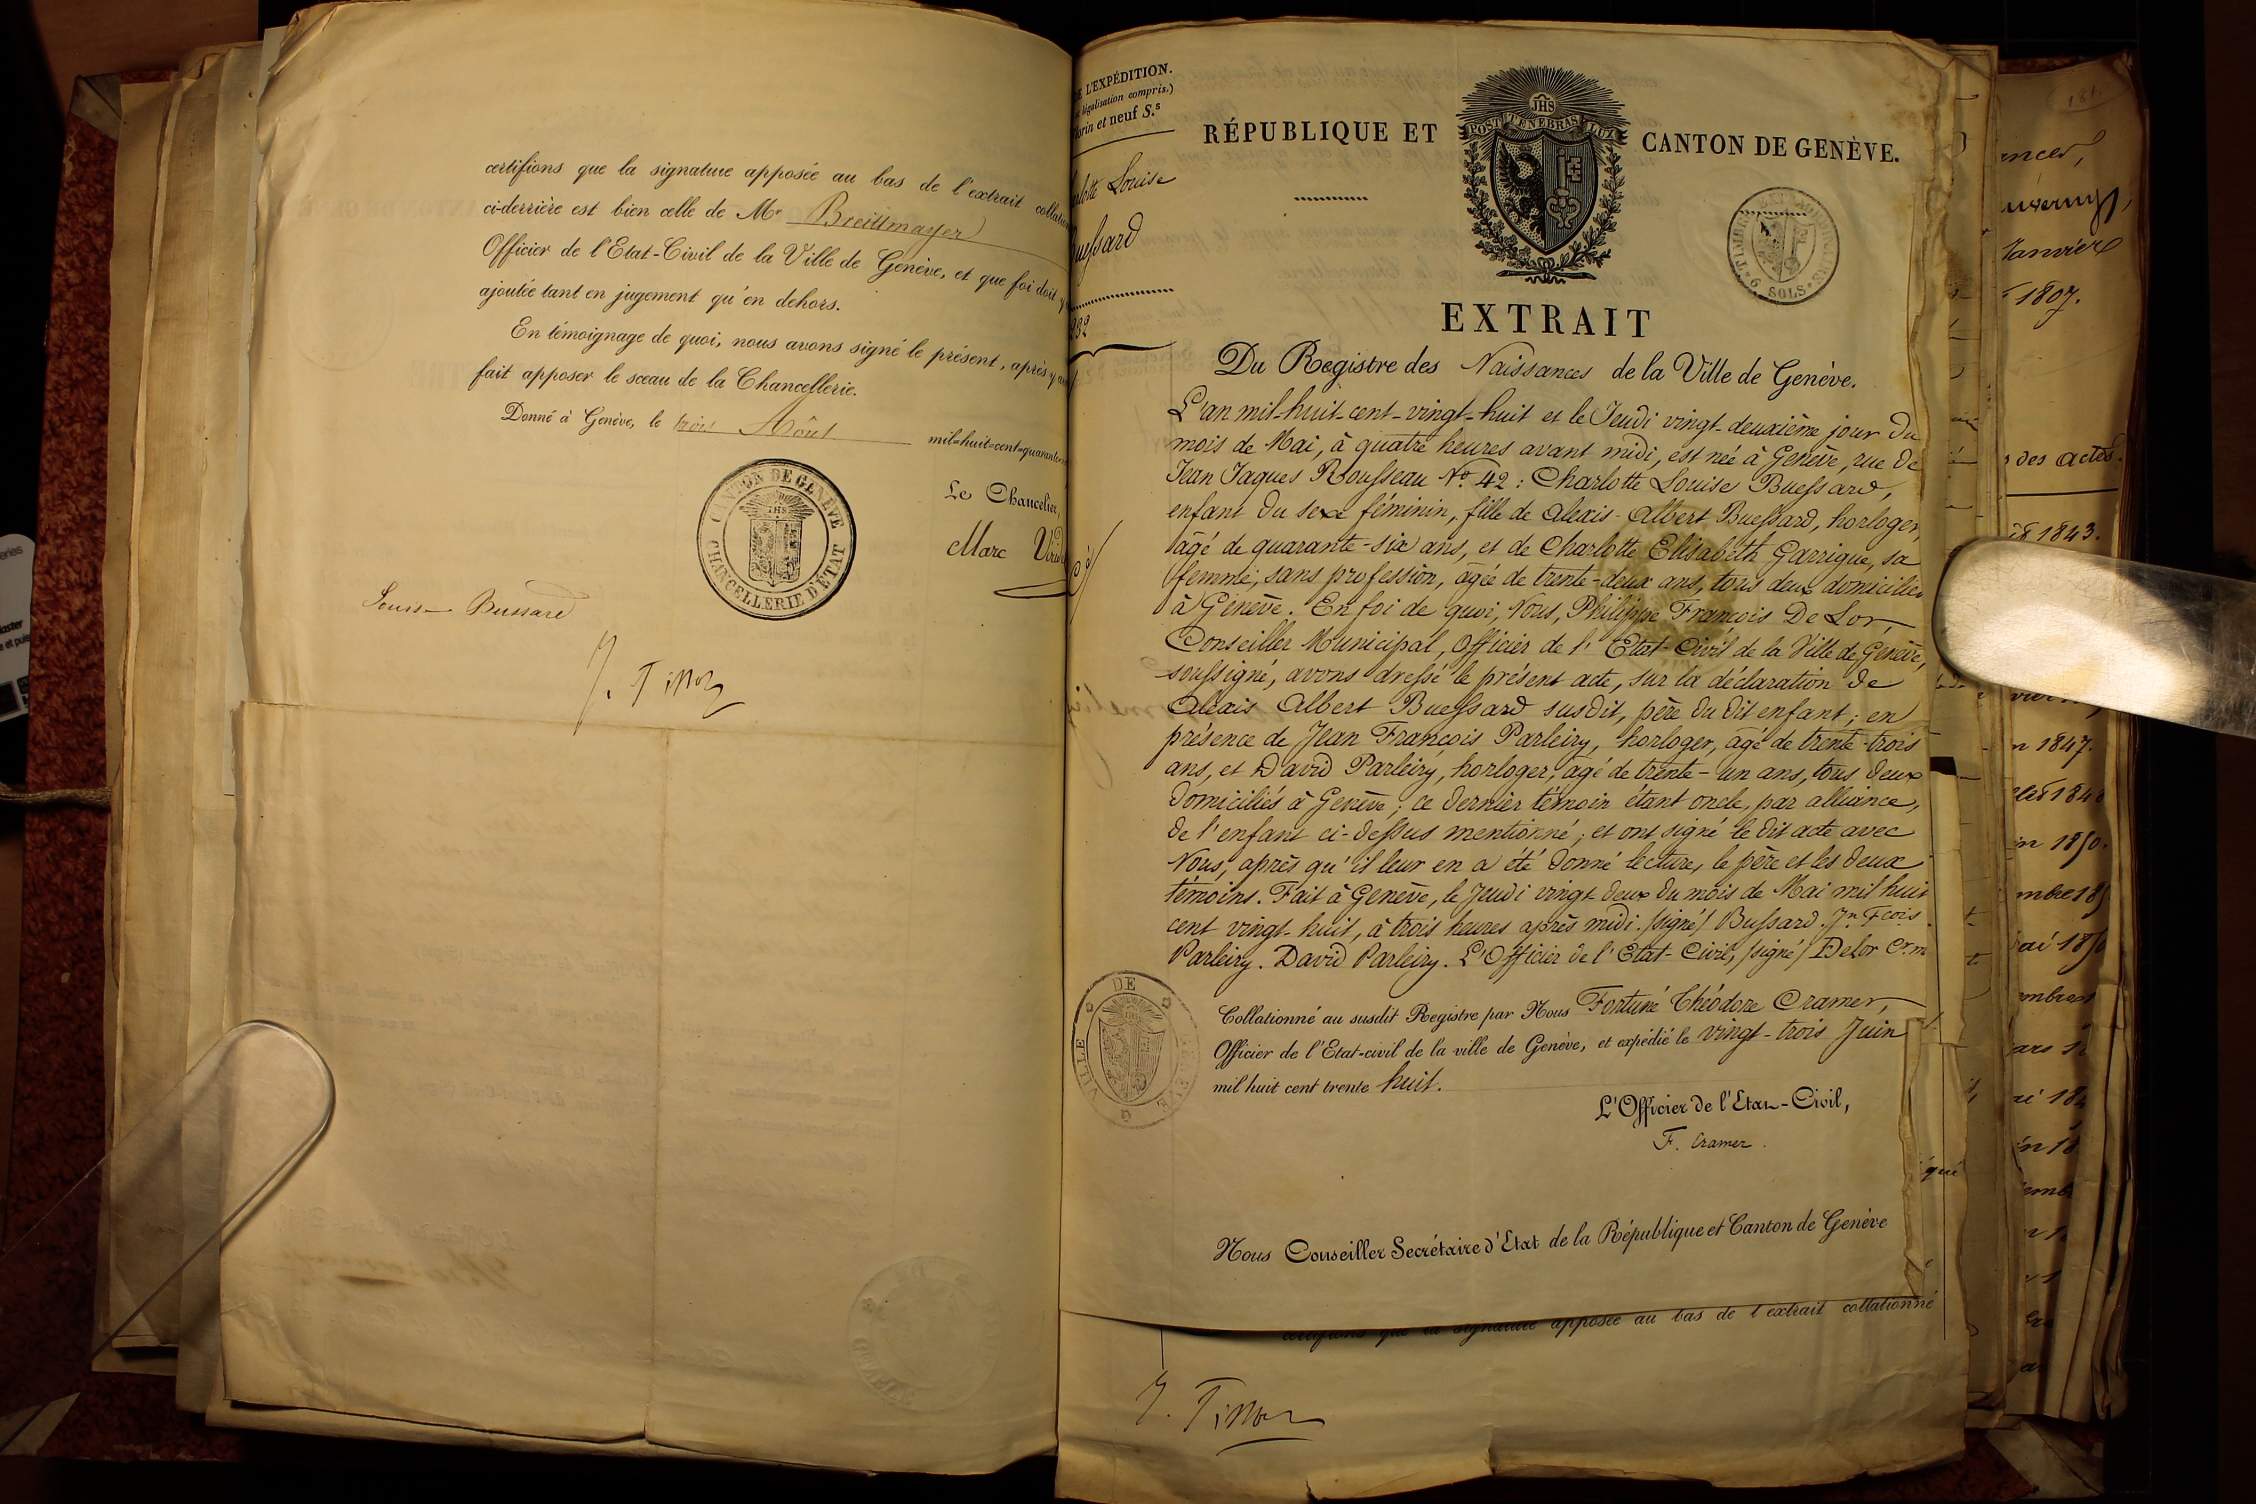 certifions que la signature apposée au bas de l'extrait
ci-derrière est bien celle de Mr Breittmayer
Officier de l'Etat-Civil de la Ville de Genève, et que foi doit
ajoutée tant en jugement qu'en dehors.
En témoignage de quoi, nous avons signé le présent, après y
fait apposer le sceau de la Chancellerie.
Donné à Genève, le trois Août mil=huit=cent=quarante
Le Chancelier,
Marc
CANTON DE GENÈVE
CHANCELLERIE D'ÉTAT
JHS
Louise Bussard
L'EXPÉDITION.
légalisation compris.)
et neuf S.s
Louise
RÉPUBLIQUE ET CANTON DE GENÈVE.
JHS
POST TENEBRAS LUX
6 SOLS
EXTRAIT
Du Registre des Naissances de la Ville de Genève.
L'an mil-huit-cent-vingt-huit et le Jeudi vingt-deuxième jour du
mois de Mai, à quatre heures avant midi, est née à Genève, rue de
Jean Jaques Rousseau No. 42 : Charlotte Louise Buessard,
enfant du sexe féminin, fille de Alexis-Albert Buessard, horloger,
âgé de quarante-six ans, et de Charlotte Elisabeth Garrigue, sa
femme, sans profession, âgée de trente-deux ans, tous deux domiciliés
à Genève. En foi de quoi, Nous, Philippe François De Lor,
Conseiller Municipal, Officier de l'Etat-Civil de la Ville de Genève,
soussigné, avons dressé le présent acte, sur la déclaration de
Alexis Albert Buessard susdit, père du dit enfant ; en
présence de Jean François Parleiry, horloger, âgé de trente-trois
ans, et David Parleiry, horloger, âgé de trente-un ans, tous deux
domiciliés à Genève ; ce dernier témoin étant oncle, par alliance,
de l'enfant ci-dessus mentionné ; et ont signé le dit acte avec
Nous, après qu'il leur en a été donné lecture, le père et les deux
témoins. Fait à Genève, le Jeudi vingt-deux du mois de Mai mil huit
cent vingt-huit, à trois heures après midi. /signé/ Bussard. Jn. Fcois.
Parleiry. David Parleiry. L'Officier de l'Etat-Civil, /signé/ Delor Cr. m
VILLE DE
Collationné au susdit Registre par Nous Fortuné Théodore Cramer,
Officier de l'Etat-civil de la ville de Genève, et expédié le vingt-trois Juin
mil huit cent trente huit.
L'Officier de l'Etat-Civil,
F. Cramer.
Nous Conseiller Secrétaire d'Etat de la République et Canton de Genève
certifions que la signature apposée au bas de l'extrait collationné
181.
1807.
des actes.
1843.
1847.
1850.